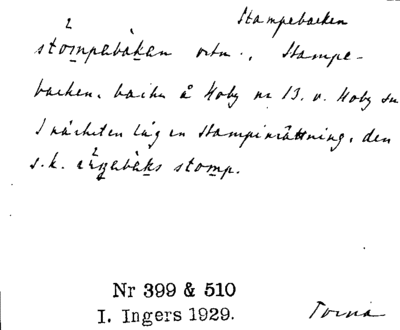 Stampebacken
sto̱mpabàkan ortn., Stampe-
backen, backe å Hoby nr 13, v. Hoby sn
I närheten låg en stampinrättning, den
s.k. stomp.
Nr 399 & 510
I. Ingers 1929. Torna